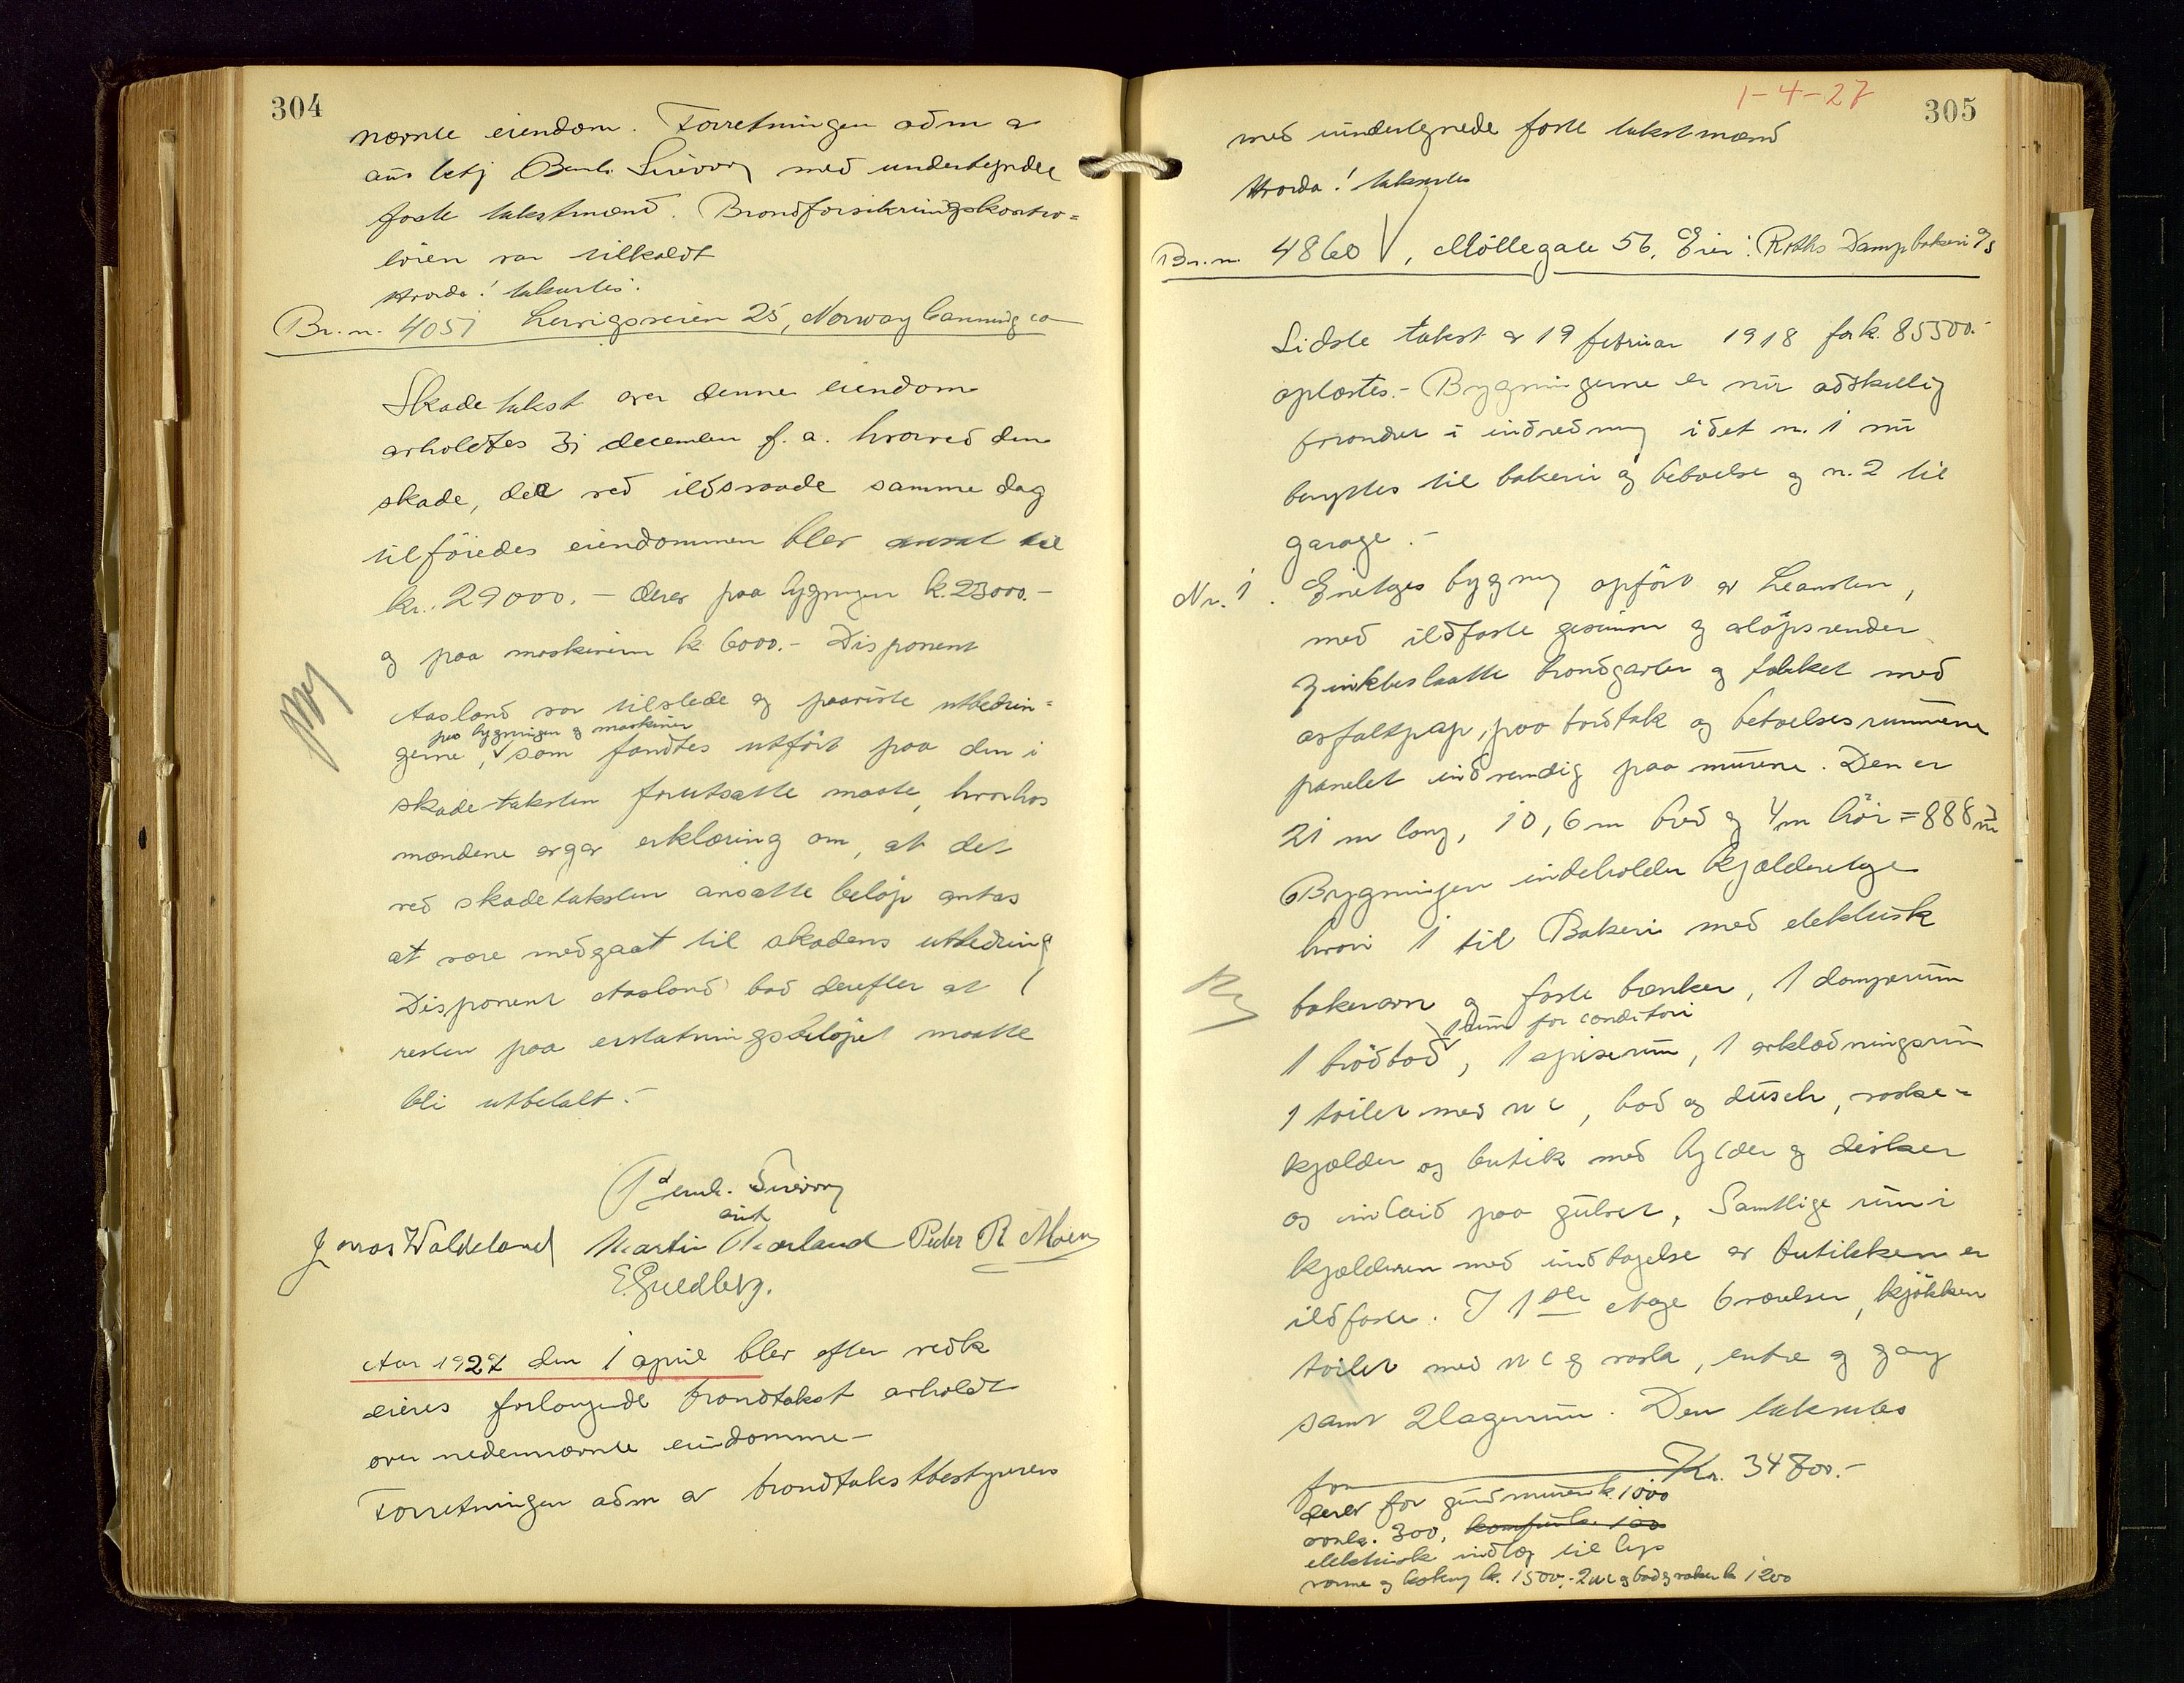 304
nævnte eiendom. Forretningen adm av
aut betj Bernh. Sirevaag med undertegnede
faste takstmænd. Brandforsikringskontro-
löien var tilkaldt
Hvorda! takertes:
Br. n. 4051 Lervigsveien 25, Norway Canning co
Skadetakst over denne eiendom
avholdtes 31 december f. a. hvorved den
skade, der ved ildsvaade samme dag
tilföiedes eiendommen blev ansat til
kr. 29000.- derav paa bygningen k. 23000.-
og paa maskineren k 6000.- Disponent
Aasland var tilstede og paaviste utbedrin-
paa bygningen og maskiner
gerne, som fandtes utfört paa den i
skadetaksten forutsatte maate, hvorhos
mændene avgav erklæring om, at det
ved skadetaksten ansatte belöp antas
at være medgaat til skadens utbedring
Disponent Aasland bad derefter at
resten paa erstatningsbelöpet maatte
bli utbetalt.-
Bernh. Sirevaag
aut
Jonas Waldeland Martin Aarland Peder R. Moen
E. Guldberg.
Aar 1927 den 1 april blev efter vedk
eieres forlangende brandtakst avholdt
over nedennævnte eiendomme-
Forretningen adm av brandtakstbestyreren
1-4-27
305
med undertegnede faste takstmænd
Hvorda! takertes
Br. n. 4860 V, Möllegate 56, Eier: Roths Dampbakeri A/S
Sidste takst av 19 februar 1918 for k. 85500.-
oplæstes.- Bygningerne er nu adskillig
forandret i indredning idet n. 1 nu
benyttes til bakeri og beboelse og n. 2 til
garage.-
Nr. 1. Enetages bygning opfört av Leansten,
med ildfaste gesimser og avlöpsrender
zinkbeslaatte brandgavler og tækket med
asfaltpap, paa bordtak og beboelsesrummene
panelet indvendig paa murene. Den er
21 m lang, 10,6 m bred og 4 m höi = 888 m3
Bygningen indeholder Kjælderetage
hvori 1 til Bakeri med elektrisk
bakerovn og faste bænker, 1 damprum
1 rum for conditori
1 brödbod, 1 spiserum, 1 avklædningsrum
1 toilet med wc, bad og dusch, vaske-
kjælder og butik med hylder og disker
og inlaid paa gulvet, Samtlige rum i
kjælderen med undtagelse av butikken er
ildfaste. I 1ste etage 6 værelser, kjökken
toilet med wc og vask, entre og gang
samt 2 lagerrum. Den takertes
for Kr. 34800.-
derav for grundmuren k. 1000
ovnk. 300, komfurk. 100
elektrisk indlæg til lys
varme og kokning k. 1500.- 2 wc og bad og vasker k 1200